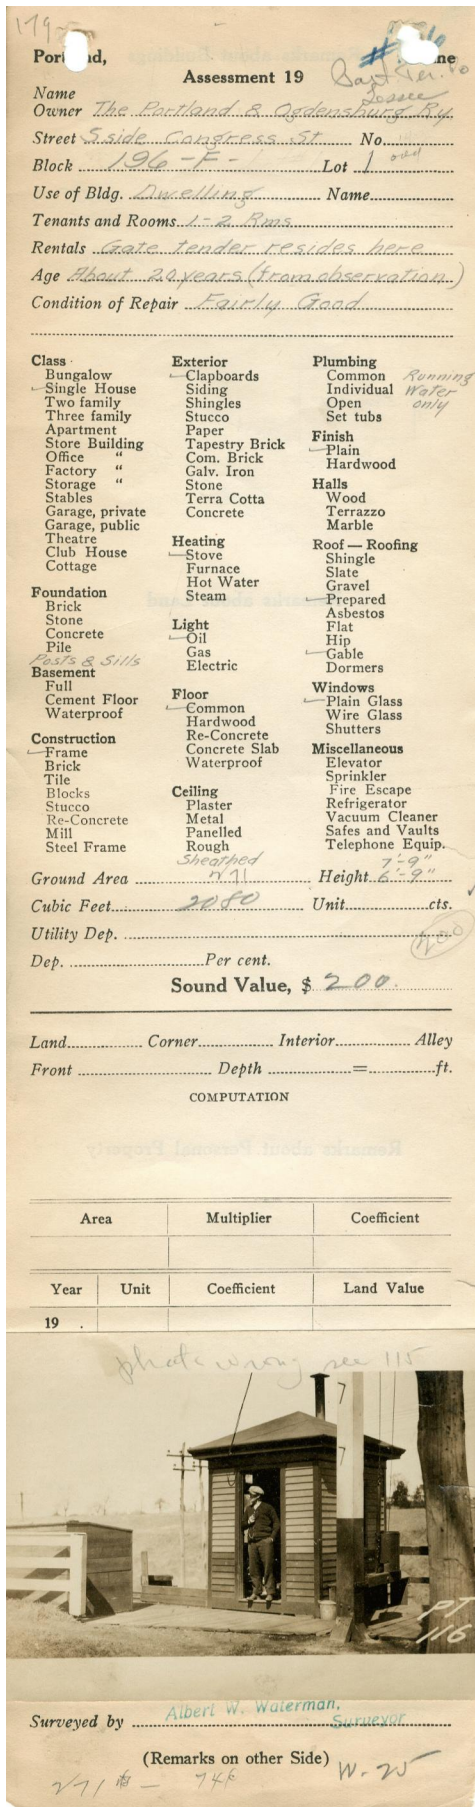 179
Portland,
Assessment 19
Name
Owner The Portland & Ogdensburg Ry
Lessee
Street S side Congress St No.
Block 196-F- Lot 1
Use of Bldg. Dwelling Name
Tenants and Rooms 1-2 Rms
Rentals Gate tender resides here
Age About 20 years (from observation)
Condition of Repair Fairly Good
Class
Bungalow
Single House
Two family
Three family
Apartment
Store Building
Office "
Factory "
Storage "
Stables
Garage, private
Garage, public
Theatre
Club House
Cottage
Foundation
Brick
Stone
Concrete
Pile
Posts & Sills
Basement
Full
Cement Floor
Waterproof
Construction
Frame
Brick
Tile
Blocks
Stucco
Re-Concrete
Mill
Steel Frame
Exterior
Clapboards
Siding
Shingles
Stucco
Paper
Tapestry Brick
Com. Brick
Galv. Iron
Stone
Terra Cotta
Concrete
Heating
Stove
Furnace
Hot Water
Steam
Light
Oil
Gas
Electric
Floor
Common
Hardwood
Re-Concrete
Concrete Slab
Waterproof
Ceiling
Plaster
Metal
Panelled
Rough
Sheathed
Plumbing
Common Running
Individual Water
Open only
Set tubs
Finish
Plain
Hardwood
Halls
Wood
Terrazzo
Marble
Roof — Roofing
Shingle
Slate
Gravel
Prepared
Asbestos
Flat
Hip
Gable
Dormers
Windows
Plain Glass
Wire Glass
Shutters
Miscellaneous
Elevator
Sprinkler
Fire Escape
Refrigerator
Vacuum Cleaner
Safes and Vaults
Telephone Equip.
7'-9"
Ground Area 271 Height 6'-9"
Cubic Feet 2080 Unit cts.
Utility Dep.
200
Dep. Per cent.
Sound Value, $ 200.
Land Corner Interior Alley
Front Depth = ft.
COMPUTATION
Remarks about Personal Property
Area Multiplier Coefficient
Year Unit Coefficient Land Value
19 .
photo wrong see 115
7
7
PT
116
Surveyed by Albert W. Waterman,
Surveyor
(Remarks on other Side)
271 W-25